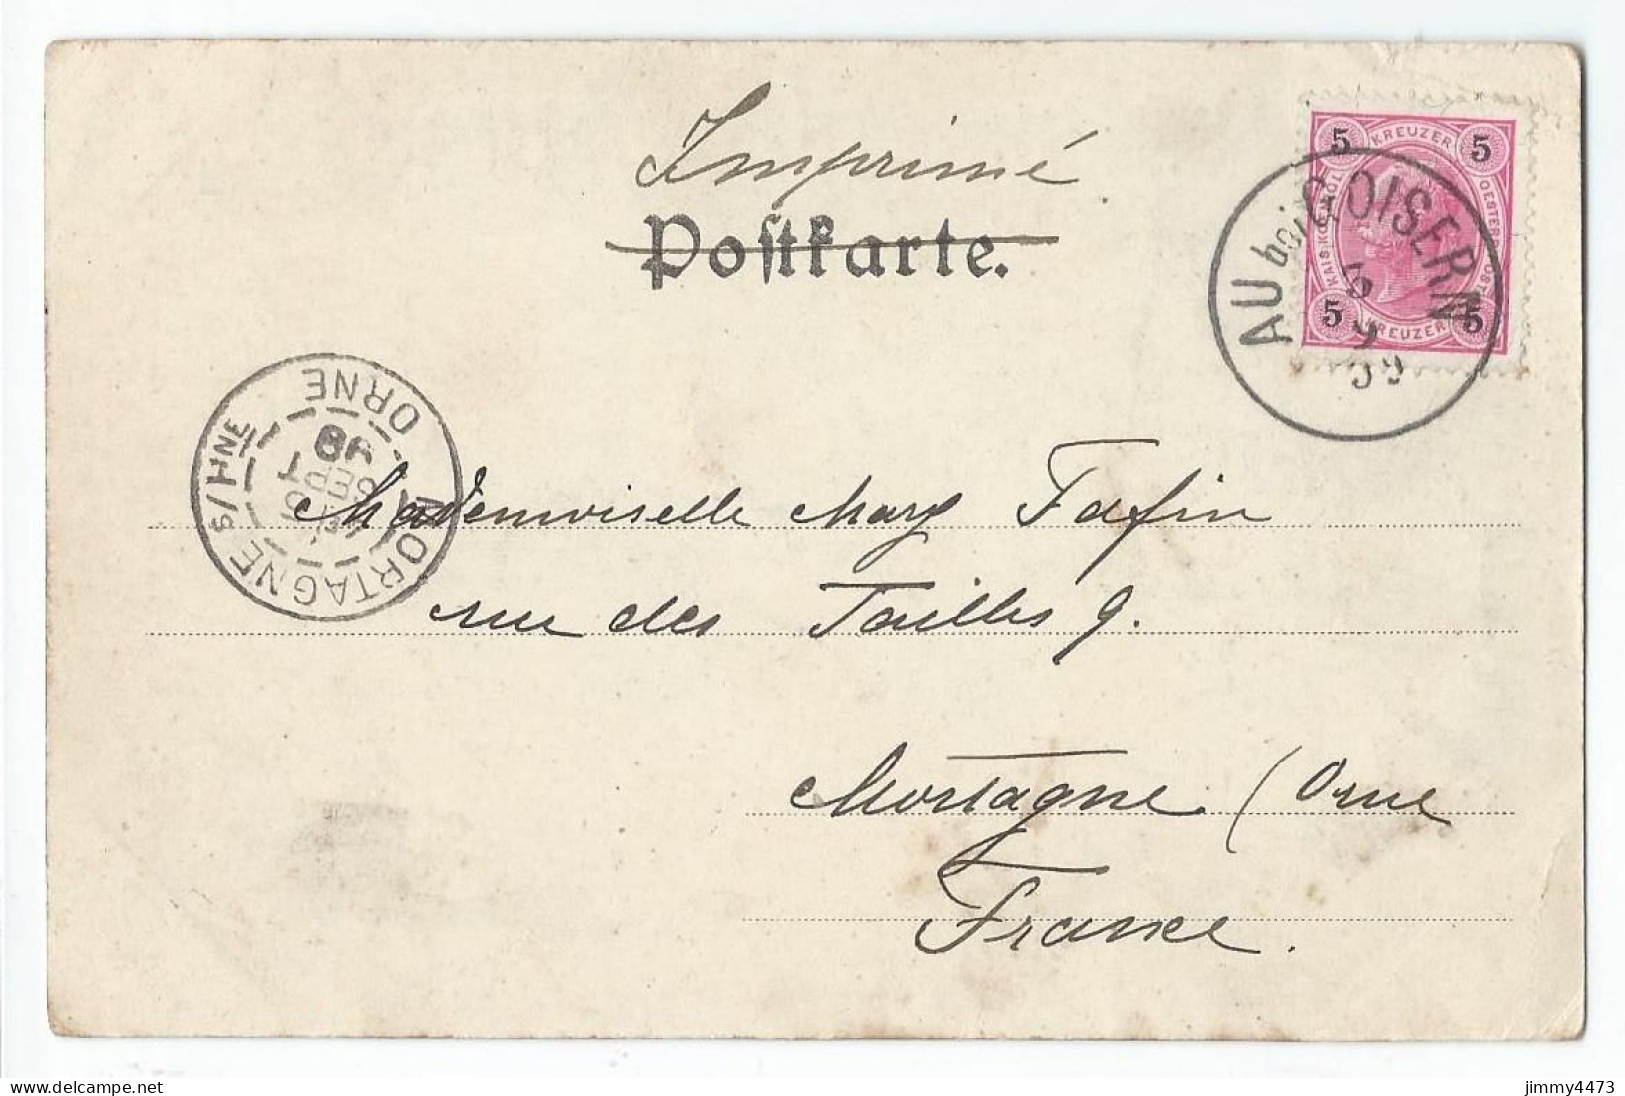 Imprimé
Postkarte.
5 KREUZER 5
KAIS. KOENIGL. OESTERR. POST
5 KREUZER 5
AU bei GOISERN
3
9
99
MORTAGNE S/HNE
ORNE
SEPT
Mademoiselle Mary Fafin
rue des Tailles 9.
Mortagne (Orne
France.
www.delcampe.net
jimmy4473